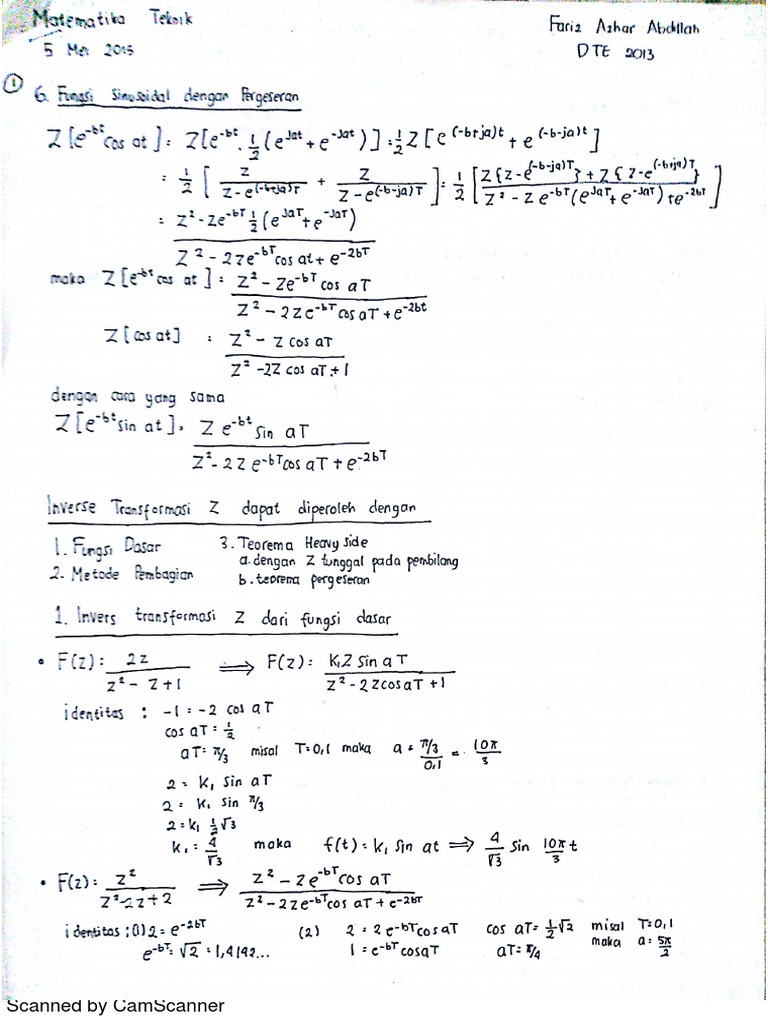 Matematika Teknik
Fariz Azhar Abdillah
5 Mei 2015
DTE 2013
①
6. Fungsi Sinusoidal dengan Pergeseran
Z[e^-bt cos at] : Z[e^-bt . 1/2 (e^jat + e^-jat)] = 1/2 Z[e^(-b+ja)t + e^(-b-ja)t]
: 1/2 [ Z / (Z - e^(-b+ja)T) + Z / (Z - e^(-b-ja)T) ] = 1/2 [ (Z{Z - e^(-b-ja)T} + Z{Z - e^(-b+ja)T}) / (Z² - Z e^-bT (e^jaT + e^-jaT) + e^-2bT) ]
: (Z² - Ze^-bT 1/2 (e^jaT + e^-jaT)) / (Z² - 2Ze^-bT cos at + e^-2bT)
maka Z[e^-bt cos at] : (Z² - Ze^-bT cos aT) / (Z² - 2Ze^-bT cos aT + e^-2bt)
Z[cos at] : (Z² - Z cos aT) / (Z² - 2Z cos aT + 1)
dengan cara yang sama
Z[e^-bt sin at] = (Z e^-bt sin aT) / (Z² - 2Z e^-bT cos aT + e^-2bT)
Inverse Transformasi Z dapat diperoleh dengan
1. Fungsi Dasar
2. Metode Pembagian
3. Teorema Heavy side
a. dengan Z tunggal pada pembilang
b. teorema pergeseran
1. Invers transformasi Z dari fungsi dasar
• F(z) : 2z / (z² - z + 1) ⟹ F(z) : K₁Z sin aT / (z² - 2Z cos aT + 1)
identitas : -1 = -2 cos aT
cos aT = 1/2
aT = π/3 misal T=0,1 maka a = (π/3)/0,1 = 10π/3
2 = K₁ sin aT
2 = K₁ sin π/3
2 = k₁ 1/2 √3
k₁ = 4/√3 maka f(t) = k₁ sin at ⟹ 4/√3 sin 10π/3 t
• F(z) : z² / (z² - 2z + 2) ⟹ (z² - ze^-bT cos aT) / (z² - 2ze^-bT cos aT + e^-2bT)
identitas : (1) 2 = e^-2bT (2) 2 = 2e^-bT cos aT cos aT = 1/2 √2 misal T=0,1
e^-bT = √2 = 1,4142... 1 = e^-bT cos aT aT = π/4 maka a = 5π/2
Scanned by CamScanner